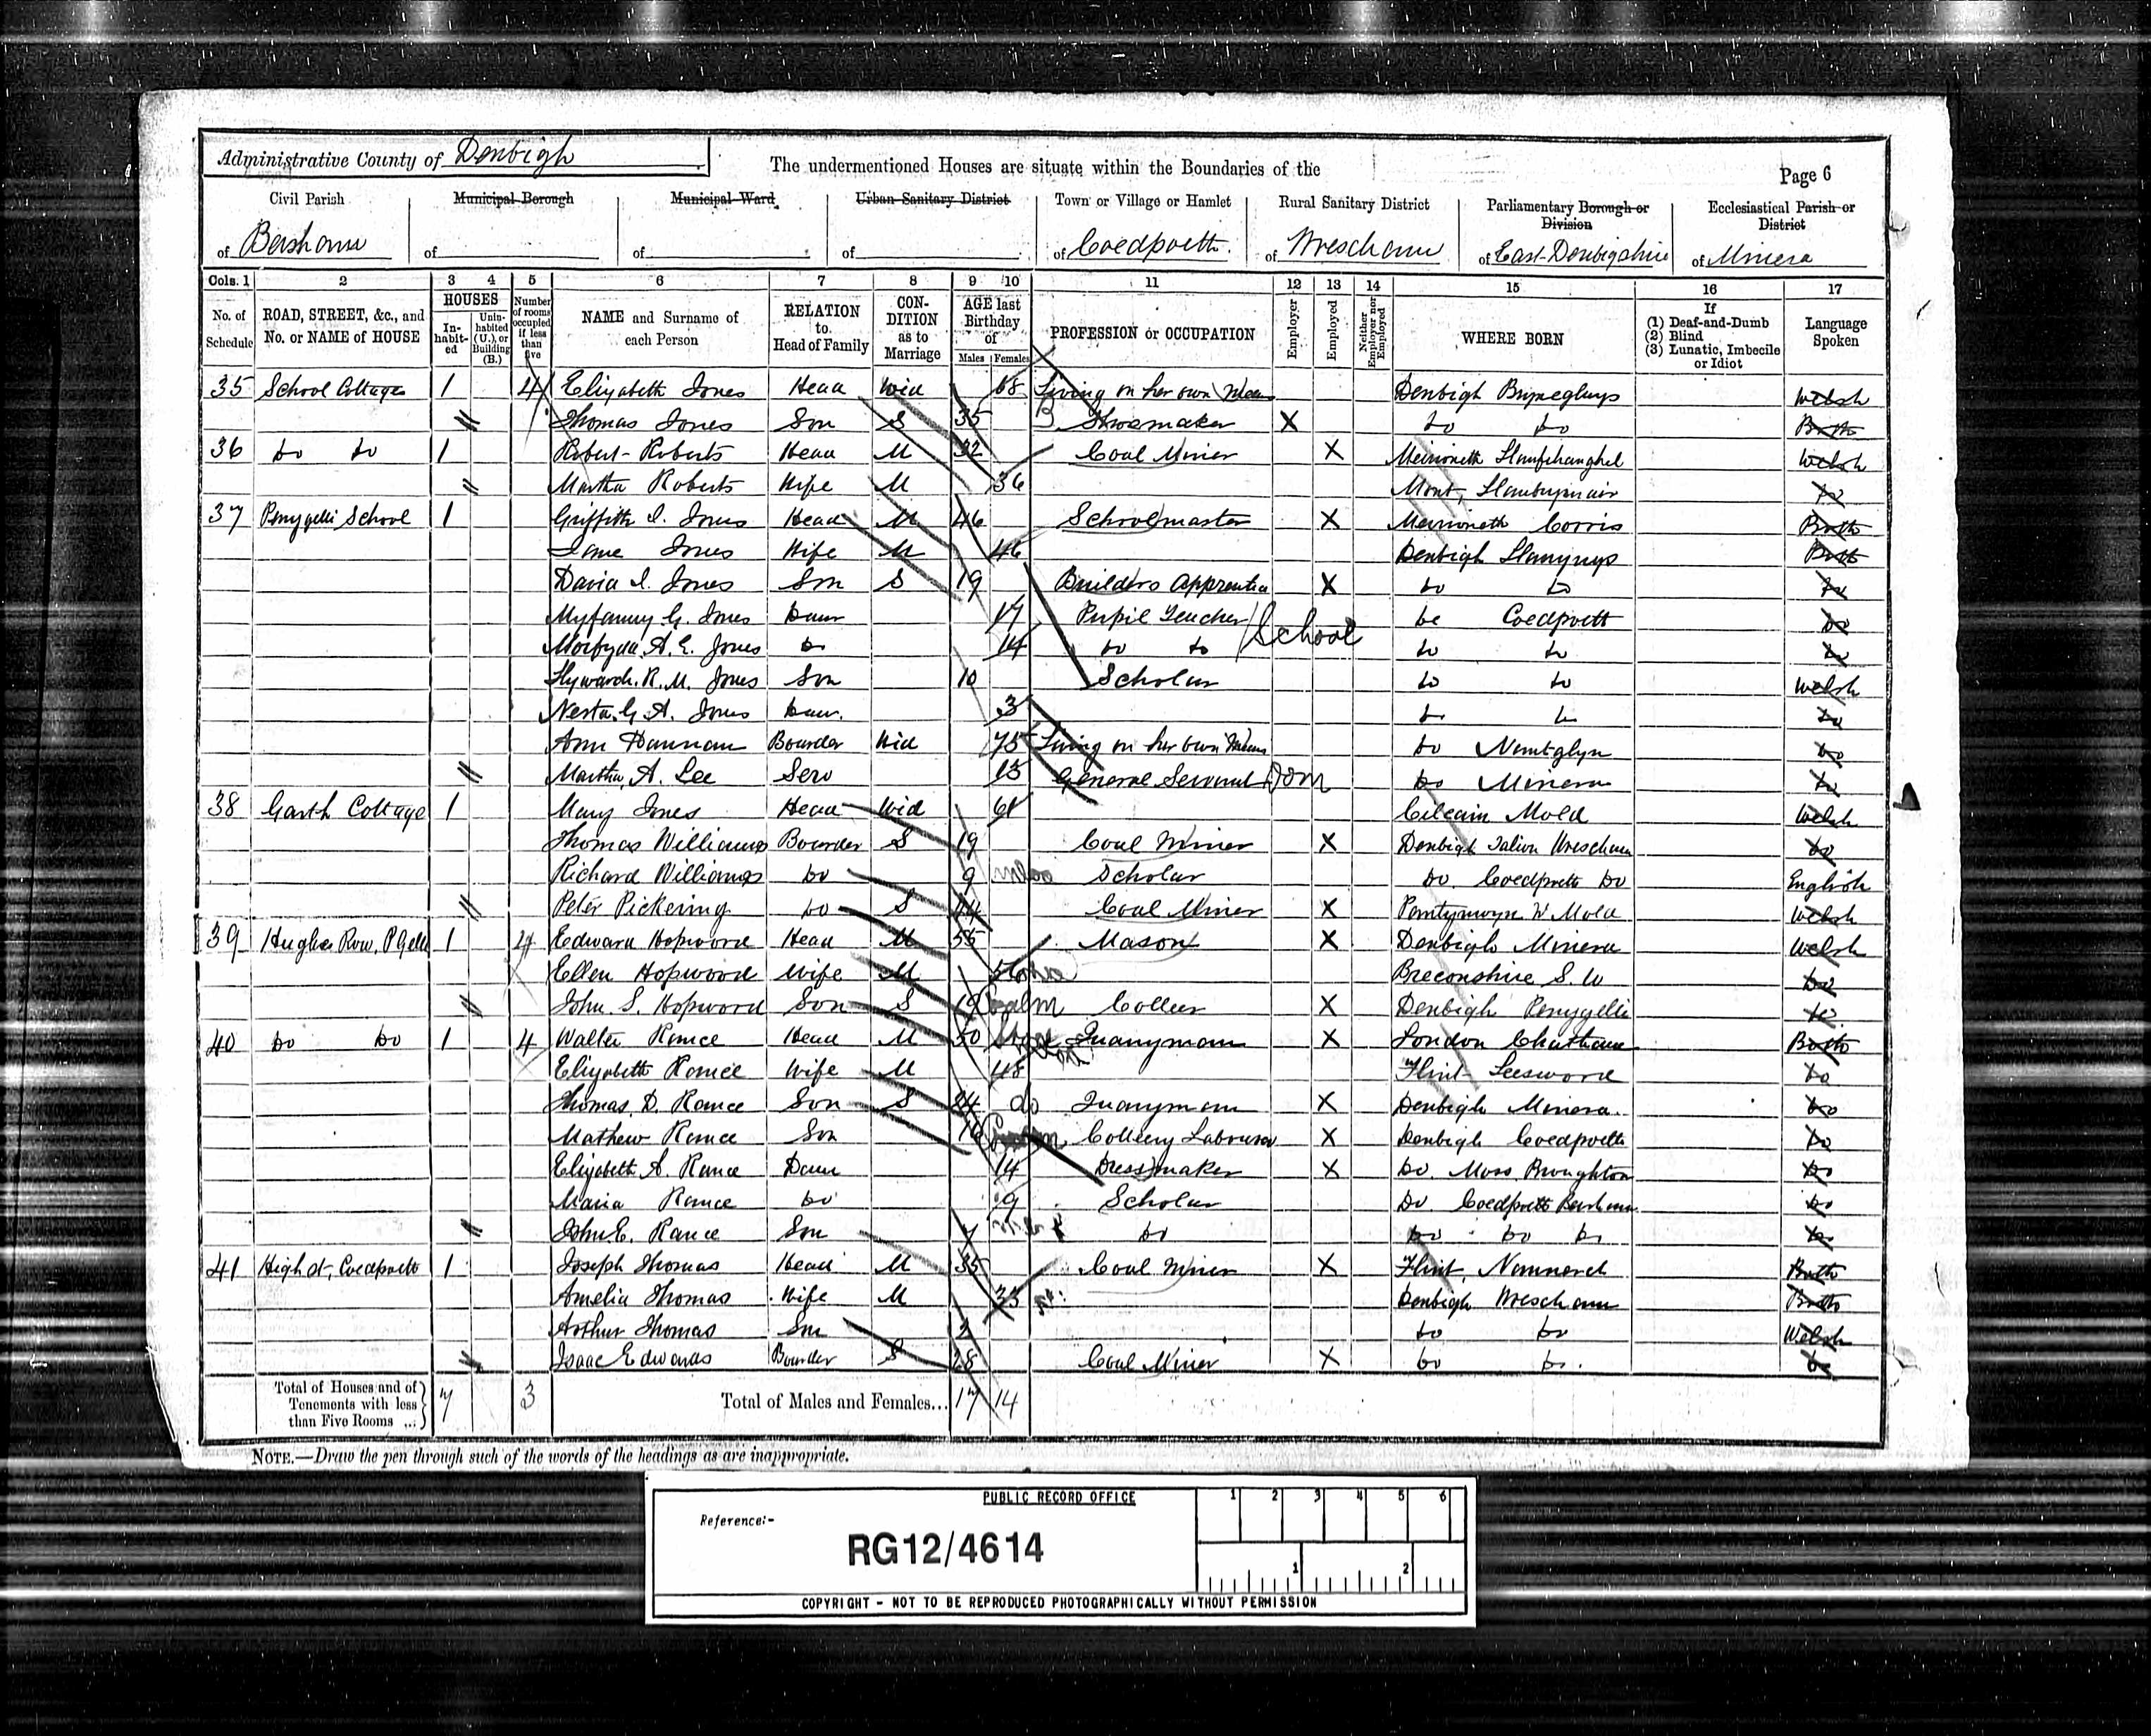 Administrative County of Denbigh
The undermentioned Houses are situate within the Boundaries of the
Page 6
Civil Parish of Bersham
Municipal Borough of
Municipal Ward of
Urban Sanitary District of
Town or Village or Hamlet of Coedpoeth
Rural Sanitary District of Wrexham
Parliamentary Borough or Division of East Denbigshire
Ecclesiastical Parish or District of Minera
Cols. 1 2 3 4 5 6 7 8 9 10 11 12 13 14 15 16 17
No. of Schedule
ROAD, STREET, &c., and No. or NAME of HOUSE
HOUSES
In-habit-ed
Unin-habited (U.), or Building (B.)
Number of rooms occupied if less than five
NAME and Surname of each Person
RELATION to Head of Family
CON-DITION as to Marriage
AGE last Birthday of
Males Females
PROFESSION or OCCUPATION
Employer
Employed
Neither Employer nor Employed
WHERE BORN
If (1) Deaf-and-Dumb (2) Blind (3) Lunatic, Imbecile or Idiot
Language Spoken
35 School Cottages 1 4 Elizabeth Jones Head Wid 68 Living on her own Means Denbigh Welsh
Thomas Jones Son S 35 Shoemaker X Do Do Both
36 Do Do 1 Robert Roberts Head M 32 Coal Miner X Meirioneth Llanfihanghel Welsh
Martha Roberts Wife M 36 Mont, Llanbrynmair Do
37 Penygelli School 1 Griffith I. Jones Head M 46 Schoolmaster X Meirioneth Corris Both
Jane Jones Wife M 46 Denbigh Llanynys Both
David I. Jones Son S 19 Builders Apprentice X Do Do Do
Myfanwy G. Jones Daur 17 Pupil Teacher School Do Coedpoeth Do
Morfydd A. E. Jones Do 14 Do Do Do Do Do
Llywarch R. M. Jones Son 10 Scholar Do Do Welsh
Nesta G. A. Jones Daur. 3 Do Do Do
Ann Hannam Boarder Wid 75 Living on her own Means Do Nantglyn Do
Martha A. Lee Serv 13 General Servant Dom Do Minera Do
38 Garth Cottage 1 Mary Jones Head Wid 61 Cilcain Mold Welsh
Thomas Williams Boarder S 19 Coal Miner X Denbigh Talwrn Wrexham Do
Richard Williams Do 9 Scholar Do. Coedpoeth Do English
Peter Pickering Do S 44 Coal Miner X Pantymwyn Nr Mold Welsh
39 Hughes Row, P Gelli 1 4 Edward Hopwood Head M 55 Mason X Denbigh Minera Welsh
Ellen Hopwood Wife M 56 Breconshire S. W Do
John. S. Hopwood Son S 19 Collier X Denbigh Penygelli Do
40 Do Do 1 4 Walter Rance Head M 50 Quarryman X London Chatham Both
Elizabeth Rance Wife M 48 Flint Leeswood Do
Thomas. D. Rance Son S 24 do Quarryman X Denbigh Minera. Do
Mathew Rance Son 16 Colliery Labourer X Denbigh Coedpoeth Do
Elizabeth A. Rance Daur 14 Dressmaker X Do. Moss Broughton Do
Maria Rance Do 9 Scholar Do. Coedpoeth Bersham Do
John E. Rance Son 7 Do Do Do Do Do
41 High St, Coedpoeth 1 Joseph Thomas Head M 35 Coal Miner X Flint, Nannerch Both
Amelia Thomas Wife M 33 Denbigh Wrexham Both
Arthur Thomas Son 2 Do Do Welsh
Isaac Edwards Boarder S 28 Coal Miner X Do Do. Do
Total of Houses and of Tenements with less than Five Rooms ... 7 3
Total of Males and Females... 17 14
NOTE.—Draw the pen through such of the words of the headings as are inappropriate.
PUBLIC RECORD OFFICE
Reference:-
RG12/4614
1 2 3 4 5 6
1 2
COPYRIGHT - NOT TO BE REPRODUCED PHOTOGRAPHICALLY WITHOUT PERMISSION